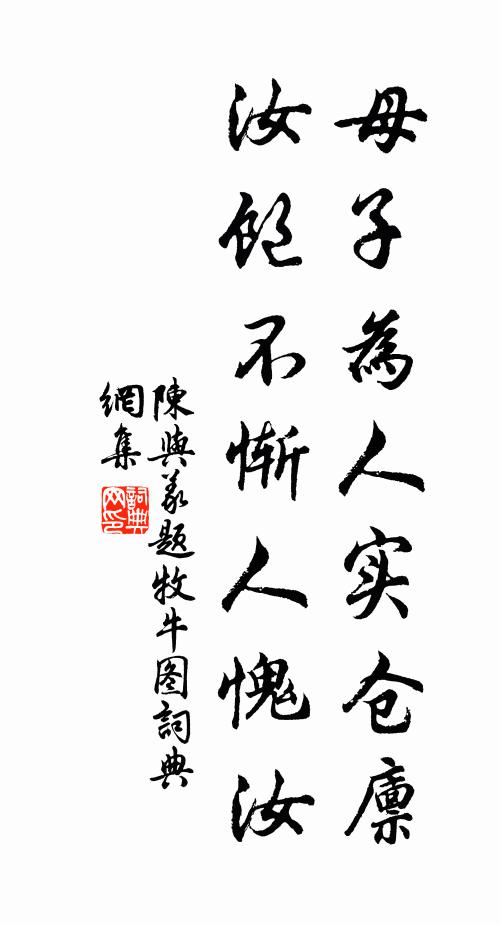 母子為人实仓廪
汝飽不慚人愧汝
陳與義題牧牛图詞典
網集
詞典
网印